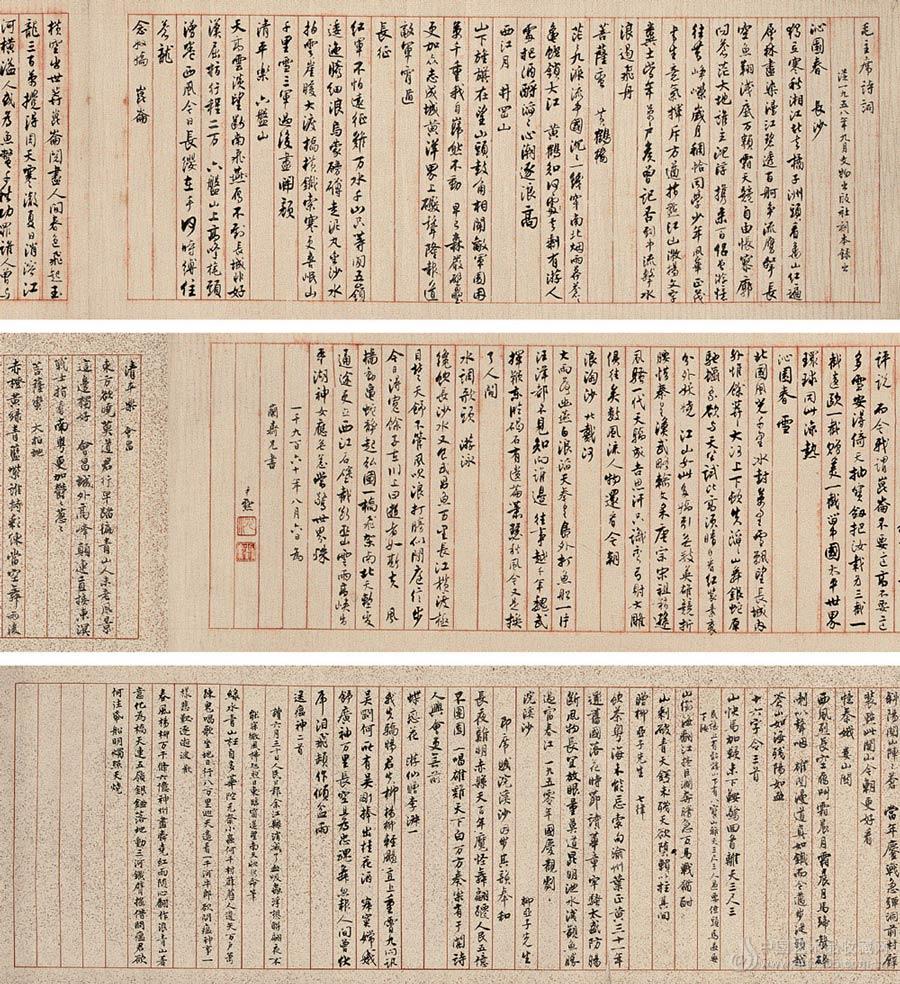 毛主席诗詞
從一九五八年九月文物出版社刻本錄出
沁園春 長沙
獨立寒秋湘江北去橘子洲頭看萬山紅遍
層林盡染漫江碧透百舸爭流鷹擊長
空魚翔淺底萬類霜天競自由悵寥廓
問蒼茫大地誰主沉浮 攜來百侶曾游憶
往昔崢嶸歲月稠恰同學少年風華正茂
書生意氣揮斥方遒指點江山激揚文字
糞土當年萬戶侯曾記否到中流擊水
浪遏飛舟
菩薩蠻 黃鶴樓
茫茫九派流中國沉沉一線穿南北煙雨莽蒼蒼
龜蛇鎖大江 黃鶴知何處去剩有游人
處把酒酹滔滔心潮逐浪高
西江月 井岡山
山下旌旗在望山頭鼓角相聞敵軍圍困
萬千重我自巋然不動 早已森嚴壁壘
更加眾志成城黃洋界上礮聲隆報道
敵軍宵遁
長征
紅軍不怕遠征難萬水千山只等閒五嶺
逶迤騰細浪烏蒙磅礴走泥丸金沙水
拍雲崖暖大渡橋橫鐵索寒更喜岷山
千里雪三軍過後盡開顏
清平樂 六盤山
天高雲淡望斷南飛雁不到長城非好
漢屈指行程二萬 六盤山上高峰旄頭
漫卷西風今日長纓在手何時縛住
蒼龍
念奴嬌 崑崙
橫空出世莽崑崙閱盡人間春色飛起玉
龍三百萬攪得周天寒澈夏日消溶江
河橫溢人或為魚鼈千秋功罪誰人曾與
評說 而今我謂崑崙不要這高不要這
多雪安得倚天抽寶劍把汝裁為三截一
截遺歐一截贈美一截留中國太平世界
環球同此涼熱
沁園春 雪
北國風光千里冰封萬里雪飄望長城內
外惟餘莽莽大河上下頓失滔滔山舞銀蛇原
馳蠟象欲與天公試比高須晴日看紅裝素裹
分外妖嬈 江山如此多嬌引無數英雄競折
腰惜秦皇漢武略輸文采唐宗宋祖稍遜
風騷一代天驕成吉思汗只識彎弓射大雕
俱往矣數風流人物還看今朝
浪淘沙 北戴河
大雨落幽燕白浪滔天秦皇島外打魚船一片
汪洋都不見知向誰邊 往事越千年魏武
揮鞭東臨碣石有遺篇蕭瑟秋風今又是換
了人間
水調歌頭 游泳
纔飲長沙水又食武昌魚萬里長江橫渡極
目楚天舒不管風吹浪打勝似閒庭信步
今日得寬餘子在川上曰逝者如斯夫 風
檣動龜蛇靜起宏圖一橋飛架南北天塹變
通途更立西江石壁截斷巫山雲雨高峽出
平湖神女應無恙當驚世界殊
一千九百六十年八月六日為
蘭壽兄書
尹默
清平樂 會昌
東方欲曉莫道君行早踏遍青山人未老風景
這邊獨好 會昌城外高峰顛連直接東溟
戰士指看南粵更加鬱鬱蔥蔥
菩薩蠻 大柏地
赤橙黃綠青藍紫誰持彩練當空舞雨後
復斜陽關山陣陣蒼 當年鏖戰急彈洞前村壁
裝點此關山今朝更好看
憶秦娥 婁山關
西風烈長空雁叫霜晨月霜晨月馬蹄聲碎
喇叭聲咽 雄關漫道真如鐵而今邁步從頭越
蒼山如海殘陽如血
十六字令三首
山快馬加鞭未下鞍驚回首離天三尺三
山倒海翻江捲巨瀾奔騰急萬馬戰猶酣
山刺破青天鍔未殘天欲墮賴以拄其間
贈柳亞子先生 七律
飲茶粵海未能忘索句渝州葉正黃三十一年
還舊國落花時節讀華章牢騷太盛防腸
斷風物長宜放眼量莫道昆明池水淺觀魚勝
過富春江 一九五〇年國慶觀劇 柳亞子先生
即席賦浣溪沙因步其韻奉和
浣溪沙
長夜難明赤縣天百年魔怪舞翩躚人民五億
不團圓 一唱雄雞天下白萬方奏樂有于闐詩
人興會更無前
蝶戀花 游仙贈李淑一
我失驕楊君失柳楊柳輕颺直上重霄九問訊
吳剛何所有吳剛捧出桂花酒 寂寞嫦娥
舒廣袖萬里長空且為忠魂舞忽報人間曾伏
虎淚飛頓作傾盆雨
送瘟神二首
讀六月三十日人民日報余江縣消滅了血吸蟲浮想聯翩夜不
能寐微風拂煦旭日臨窗遙望南天欣然命筆
綠水青山枉自多華陀無奈小蟲何千村薜荔人遺矢萬戶蕭
疏鬼唱歌坐地日行八萬里巡天遙看一千河牛郎欲問瘟神事一
樣悲歡逐逝波
春風楊柳萬千條六億神州盡舜堯紅雨隨心翻作浪青山著
意化為橋天連五嶺銀鋤落地動三河鐵臂搖借問瘟君欲
何往紙船明燭照天燒